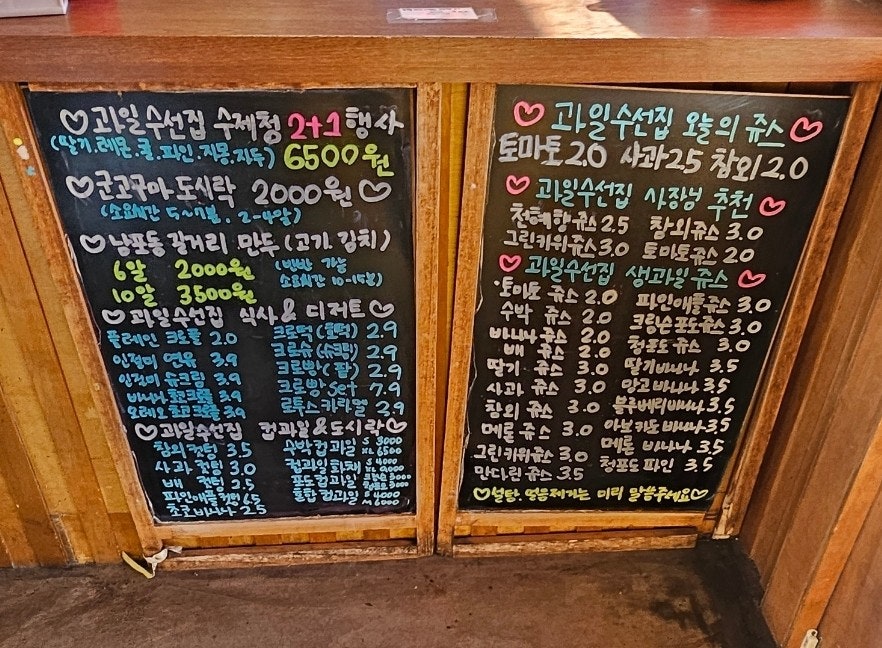 ♡과일수선집 수제청 2+1행사
(딸기.레몬.귤.파인.자몽.자두) 6500원
♡군고구마.도시락 2000원♡
(소요시간 5~7분, 2-4알)
♡남포동 길거리 만두 (고기.김치)
6알 2000원 (반반 가능
10알 3500원 소요시간 10-15분)
♡과일수선집 식사 & 디저트♡
플레인 크로플 2.0
인절미 연유 3.9
인절미 슈크림 3.9
바나나 초코크로플 3.9
오레오 초코크로플 3.9
크로떡(호떡) 2.9
크로슈(슈크림) 2.9
크로빵(팥) 2.9
크로빵 set 7.9
로투스카라멜 2.9
♡과일수선집 컵과일&도시락♡
참외컷팅 3.5
사과 컷팅 3.0
배 컷팅 2.5
파인애플컷팅 6.5
초코바나나 2.5
수박컵과일 S 3000 XL 6500
컵과일화채 S 4000
포도컵과일
혼합 컵과일 S 4000 M 6000
♡과일수선집 오늘의 쥬스♡
토마토 2.0 사과 2.5 참외 2.0
♡과일수선집 사장님 추천♡
천혜향쥬스 2.5 참외쥬스 3.0
그린키위쥬스 3.0 토마토쥬스 2.0
♡과일수선집 생과일쥬스♡
토마토 쥬스 2.0
수박 쥬스 2.0
바나나 쥬스 2.0
배 쥬스 2.0
딸기 쥬스 3.0
사과 쥬스 3.0
참외 쥬스 3.0
메론 쥬스 3.0
그린키위쥬스 3.0
만다린쥬스 3.5
파인애플쥬스 3.0
크링쓴포도쥬스 3.0
청포도 쥬스 3.0
딸기바나나 3.5
망고바나나 3.5
블루베리바나나 3.5
아보카도바나나 3.5
메론 바나나 3.5
청포도 파인 3.5
♡설탕.얼음제거는 미리 말씀주세요♡